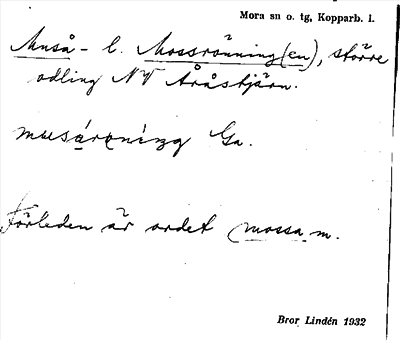 Mora sn o. tg, Kopparb. l.
Muså- l. Mossrönning(en), större
odling NV Åråstjärn.
Ga.
Förleden är ordet mossa m.
Bror Lindén 1932